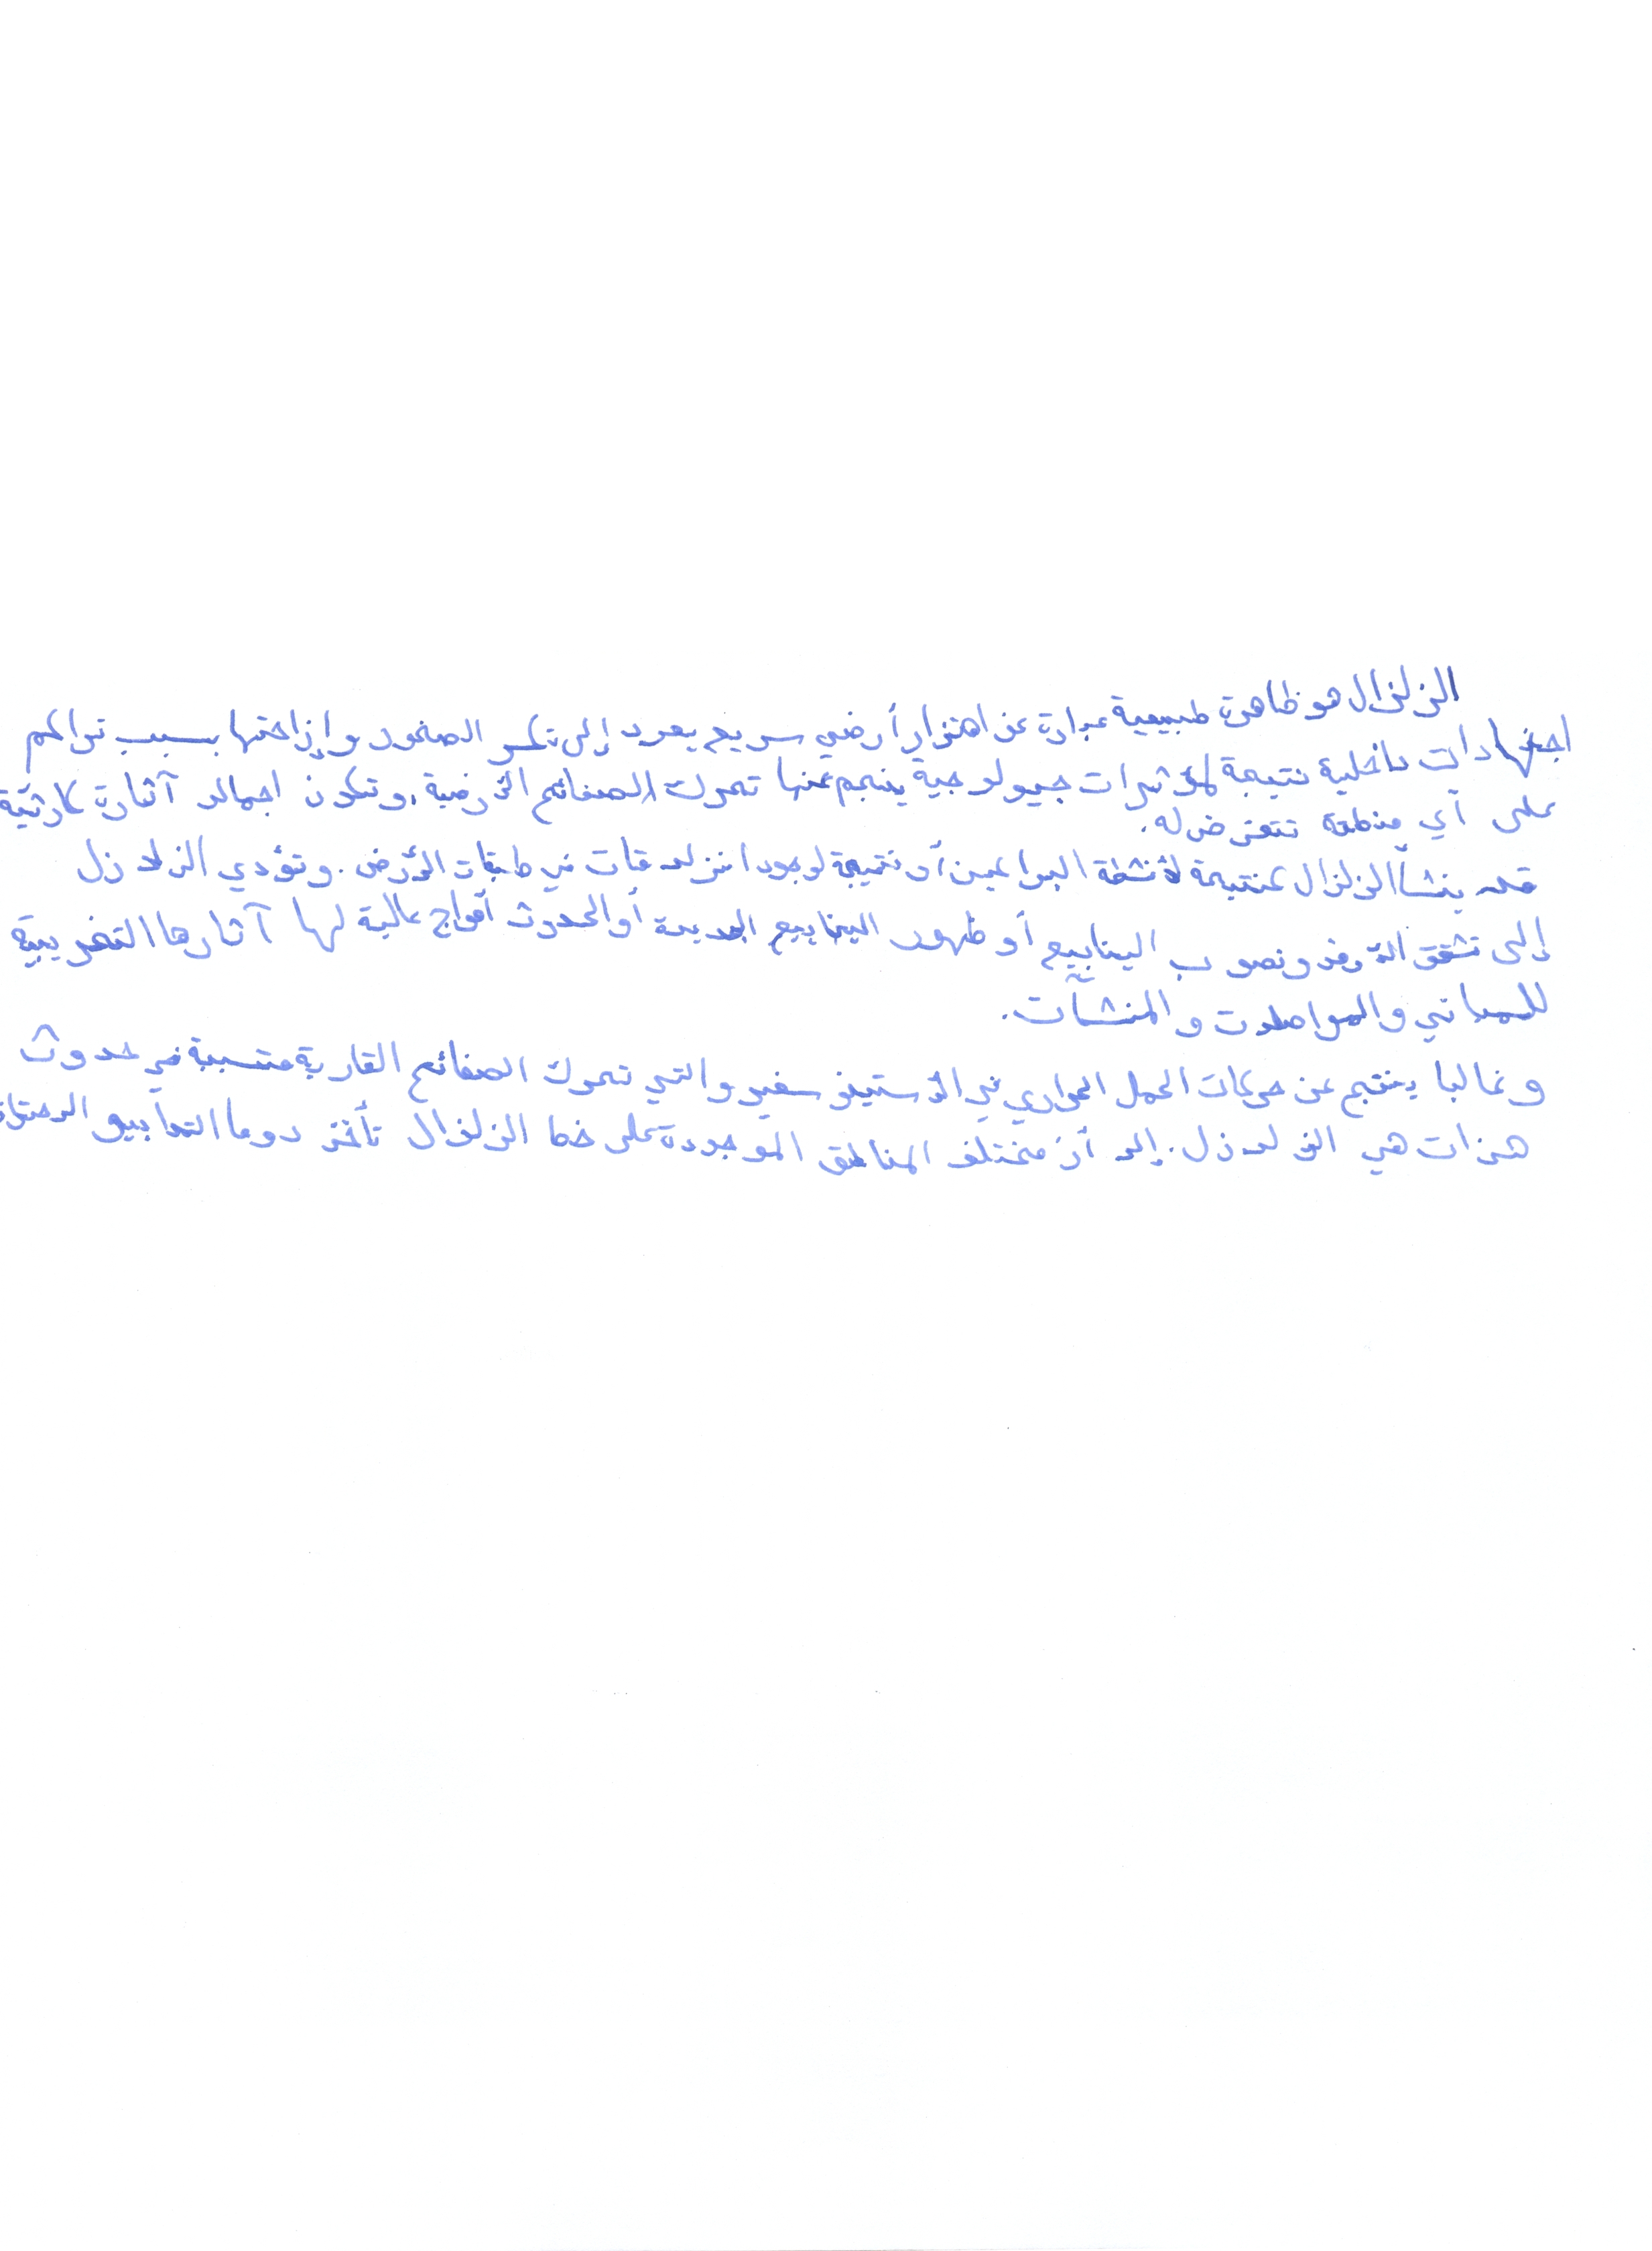 الزلزال هو ظاهرة طبيعية عبارة عن اهتزاز أرضي سريع يعود إلى تكسر الصخور وإزاحتها بسبب تراكم
اجتهادات داخلية نتيجة لمؤثرات جيولوجية ينجم عنها تحرك الصفائح الأرضية. وتكون اجمالا آثارة كارثية
على أي منطقة تتعرض له.
قد ينشأ الزلزال كنتيجة لأنشطة البراكين أو نتيجة لوجود انزلاقات في طبقات الأرض. وتؤدي الزلازل
إلى تشقق الأرض ونصوب الينابيع أو ظهور الينابيع الجديدة أو الحدوث أمواج عالية لها آثارها التخريبية
للمباني والمواصلات والمنشآت.
وغالبا ينتج عن حركات الحمل الحراري في الأستينوسفير والتي تحرك الصفائح القارية متسببة في حدوث
هزات هي الزلازل. إلا أن مختلف المناطق الموجودة على خط الزلزال تأخذ دوما التدابير